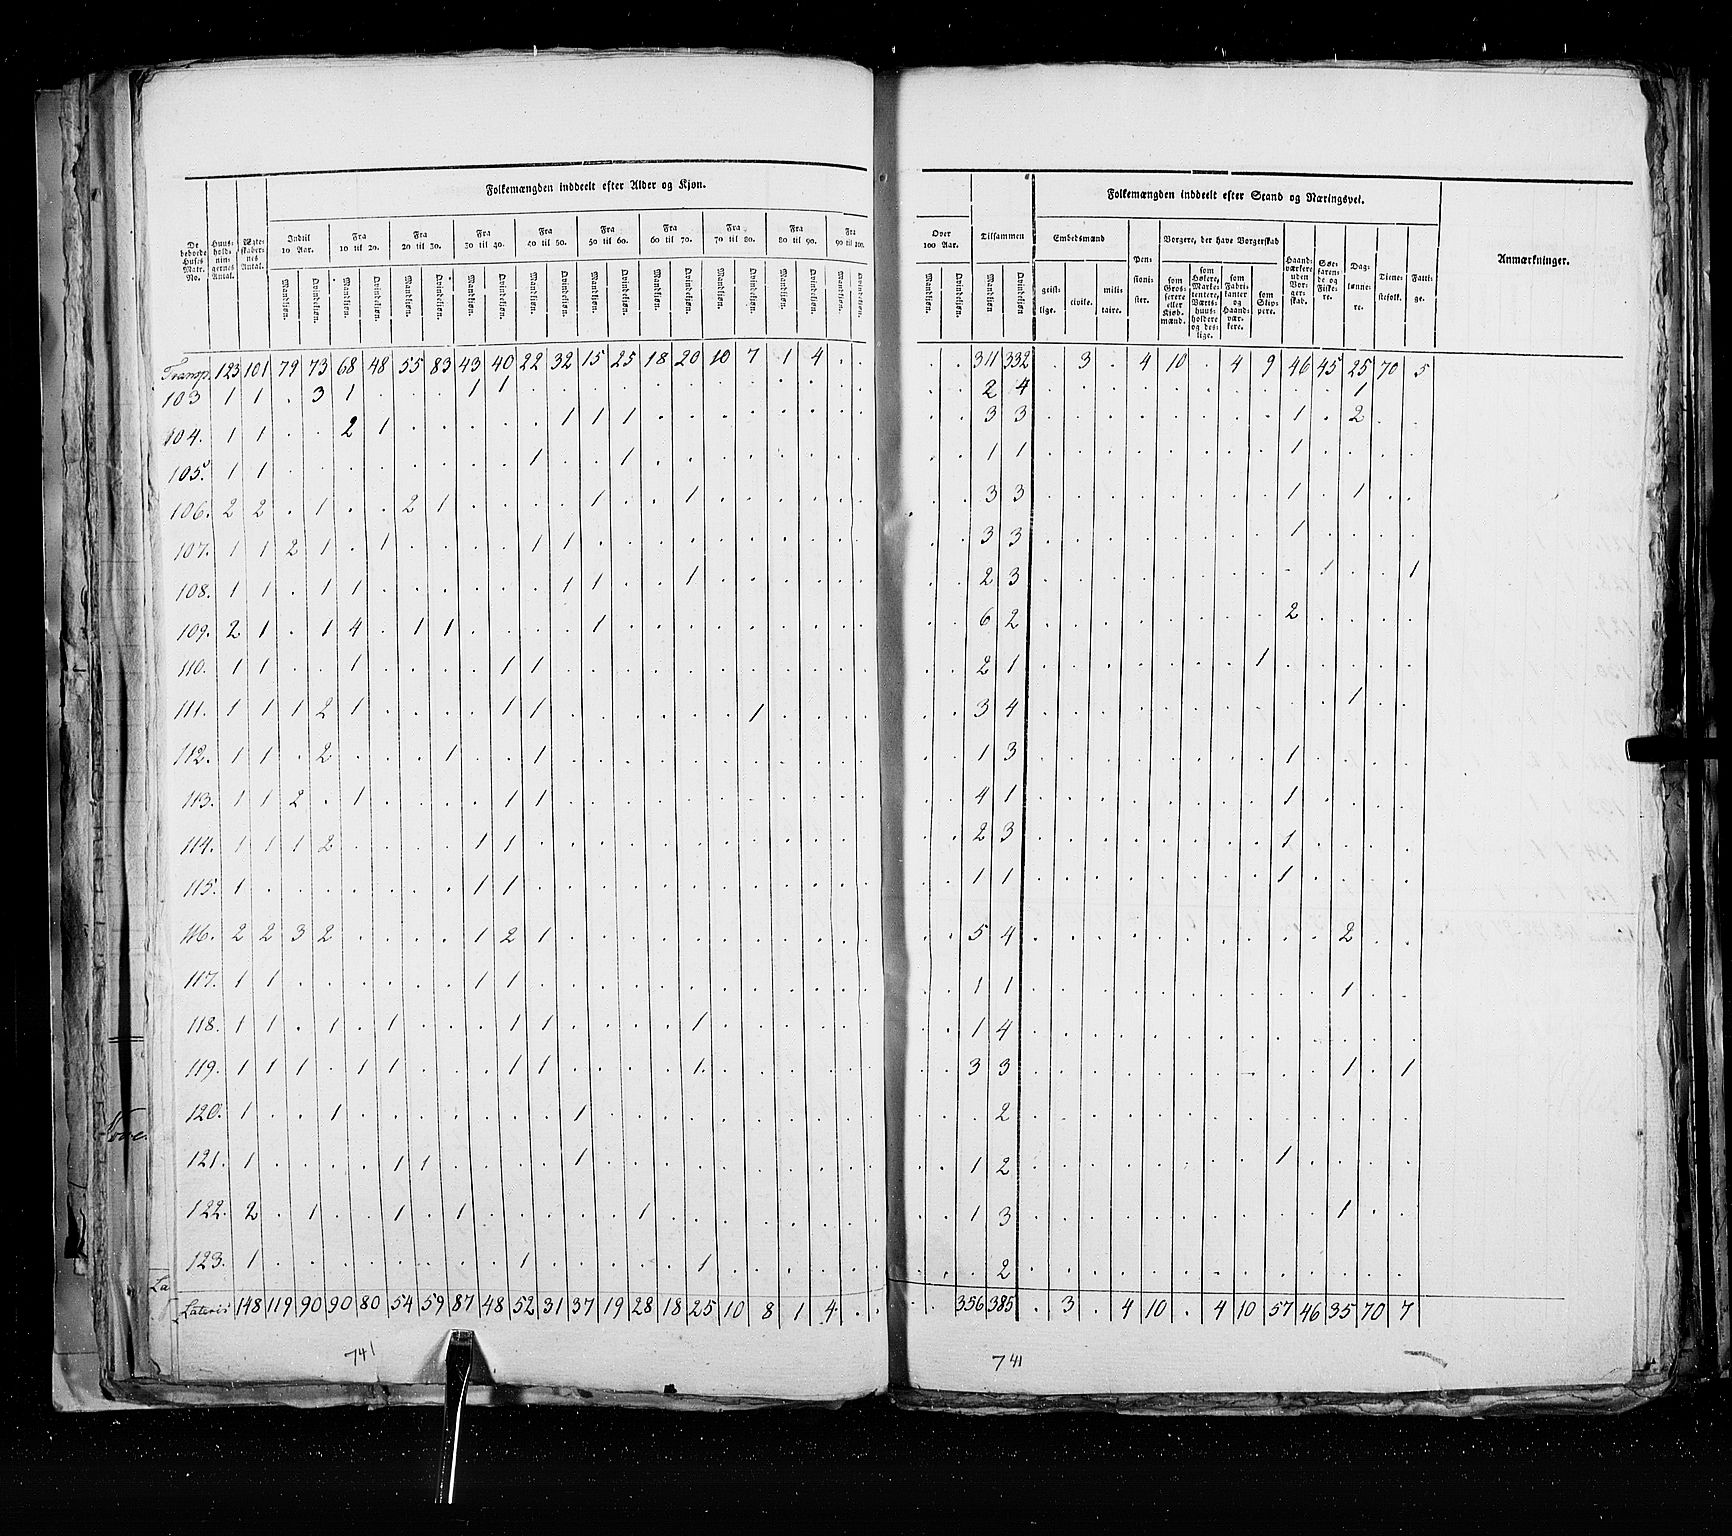 Folkemængden inddeelt efter Alder og Kjøn.
De beboede Huses Matr. No. | Huusholdningernes Antal. | Ægteskabernes Antal. | Indtil 10 Aar. | Fra 10 til 20. | Fra 20 til 30. | Fra 30 til 40. | Fra 40 til 50. | Fra 50 til 60. | Fra 60 til 70. | Fra 70 til 80. | Fra 80 til 90. | Fra 90 til 100.
Mandkjøn. Qvindekjøn. Mandkjøn. Qvindekjøn. Mandkjøn. Qvindekjøn. Mandkjøn. Qvindekjøn. Mandkjøn. Qvindekjøn. Mandkjøn. Qvindekjøn. Mandkjøn. Qvindekjøn. Mandkjøn. Qvindekjøn. Mandkjøn. Qvindekjøn. Mandkjøn. Qvindekjøn.
Transp. 123 101 79 73 68 48 55 83 43 40 22 32 15 25 18 20 10 7 1 4 . .
103 1 1 . 3 1 . . . 1 1 . . . . . . . . . . . .
104. 1 1 . . 2 1 . . . . . 1 1 1 . . . . . . . .
105. 1 1 . . . . . . . . 1 . . 1 . . . . . . . .
106. 2 2 . 1 . . 2 1 . . . . 1 . . 1 . . . . . .
107. 1 1 2 1 . 1 . . . . 1 1 . . . . . . . . . .
108. 1 1 . 1 1 . . . . . . 1 1 . . 1 . . . . . .
109. 2 1 . 1 4 . 1 1 . . . . 1 . . . . . . . . .
110. 1 1 . . 1 . . . . 1 1 . . . . . . . . . . .
111. 1 1 1 2 1 . . . . 1 1 . . . . . . 1 . . . .
112. 1 1 . 2 . . . 1 . . 1 . . . . . . . . . . .
113. 1 1 2 . 1 . . . . 1 1 . . . . . . . . . . .
114. 1 1 1 2 . . . . 1 1 . . . . . . . . . . . .
115. 1 . . . . . . . 1 1 . . . . . . . . . . . .
116. 2 2 3 2 . . . . 1 2 1 . . . . . . . . . . .
117. 1 1 . . . . . . 1 1 . . . . . . . . . . . .
118. 1 1 . 1 . 1 . . . 1 1 . . . . 1 . . . . . .
119. 1 1 1 . 1 1 . . . 1 1 . . . . 1. . . . . . .
120. 1 . . 1 . . . . . . . 1 . . . . . . . . . .
121. 1 . . . . 1 1 . . . . 1 . . . . . . . . . .
122. 2 . 1 . . 1 . 1 . . . . . 1 . . . . . . . .
123. 1 . . . . . . . . 1 . . . . . 1 . . . . . .
Lateris 148 119 90 90 80 54 59 87 48 52 31 37 19 28 18 25 10 8 1 4 . .
741
Over 100 Aar. | Tilsammen | Folkemængden inddeelt efter Stand og Næringsvei. | Anmærkninger.
Mandkjøn. Qvindekjøn. Mandkjøn. Qvindekjøn.
Embedsmænd geistlige. civile. militaire. | Pensionister. | Borgere, der have Borgerskab som Grosserere eller Kjøbmænd. | som Høkere, Marketentere, Værtshuusholdere og deslige. | som Fabrikanter og Haandværkere. | som Skippere. | Haandværkere uden Borgerskab. | Søefarende og Fiskere. | Dagslønnere. | Tienestefolk. | Fattige.
. . 311 332 . 3 . 4 10 . 4 9 46 45 25 70 5
. . 2 4 . . . . . . . . . . 1 . .
. . 3 3 . . . . . . . . 1 . 2 . .
. . 1 1 . . . . . . . . 1 . . . .
. . 3 3 . . . . . . . . 1 . 1 . .
. . 3 3 . . . . . . . . 1 . . . .
. . 2 3 . . . . . . . . . 1 . . 1
. . 6 2 . . . . . . . . 2 . . . .
. . 2 1 . . . . . . . 1 . . . . .
. . 3 4 . . . . . . . . . . 1 . .
. . 1 3 . . . . . . . . 1 . . . .
. . 4 1 . . . . . . . . 1 . . . .
. . 2 3 . . . . . . . . 1 . . . .
. . 1 1 . . . . . . . . 1 . . . .
. . 5 4 . . . . . . . . . . 2 . .
. . 1 1 . . . . . . . . . . 1 . .
. . 1 4 . . . . . . . . . . . . .
. . 3 3 . . . . . . . . . . 1 . 1
. . . 2 . . . . . . . . . . . . .
. . 1 2 . . . . . . . . 1 . . . .
. . 1 3 . . . . . . . . . . 1 . .
. . . 2 . . . . . . . . . . . . .
. . 356 385 . 3 . 4 10 . 4 10 57 46 35 70 7
741